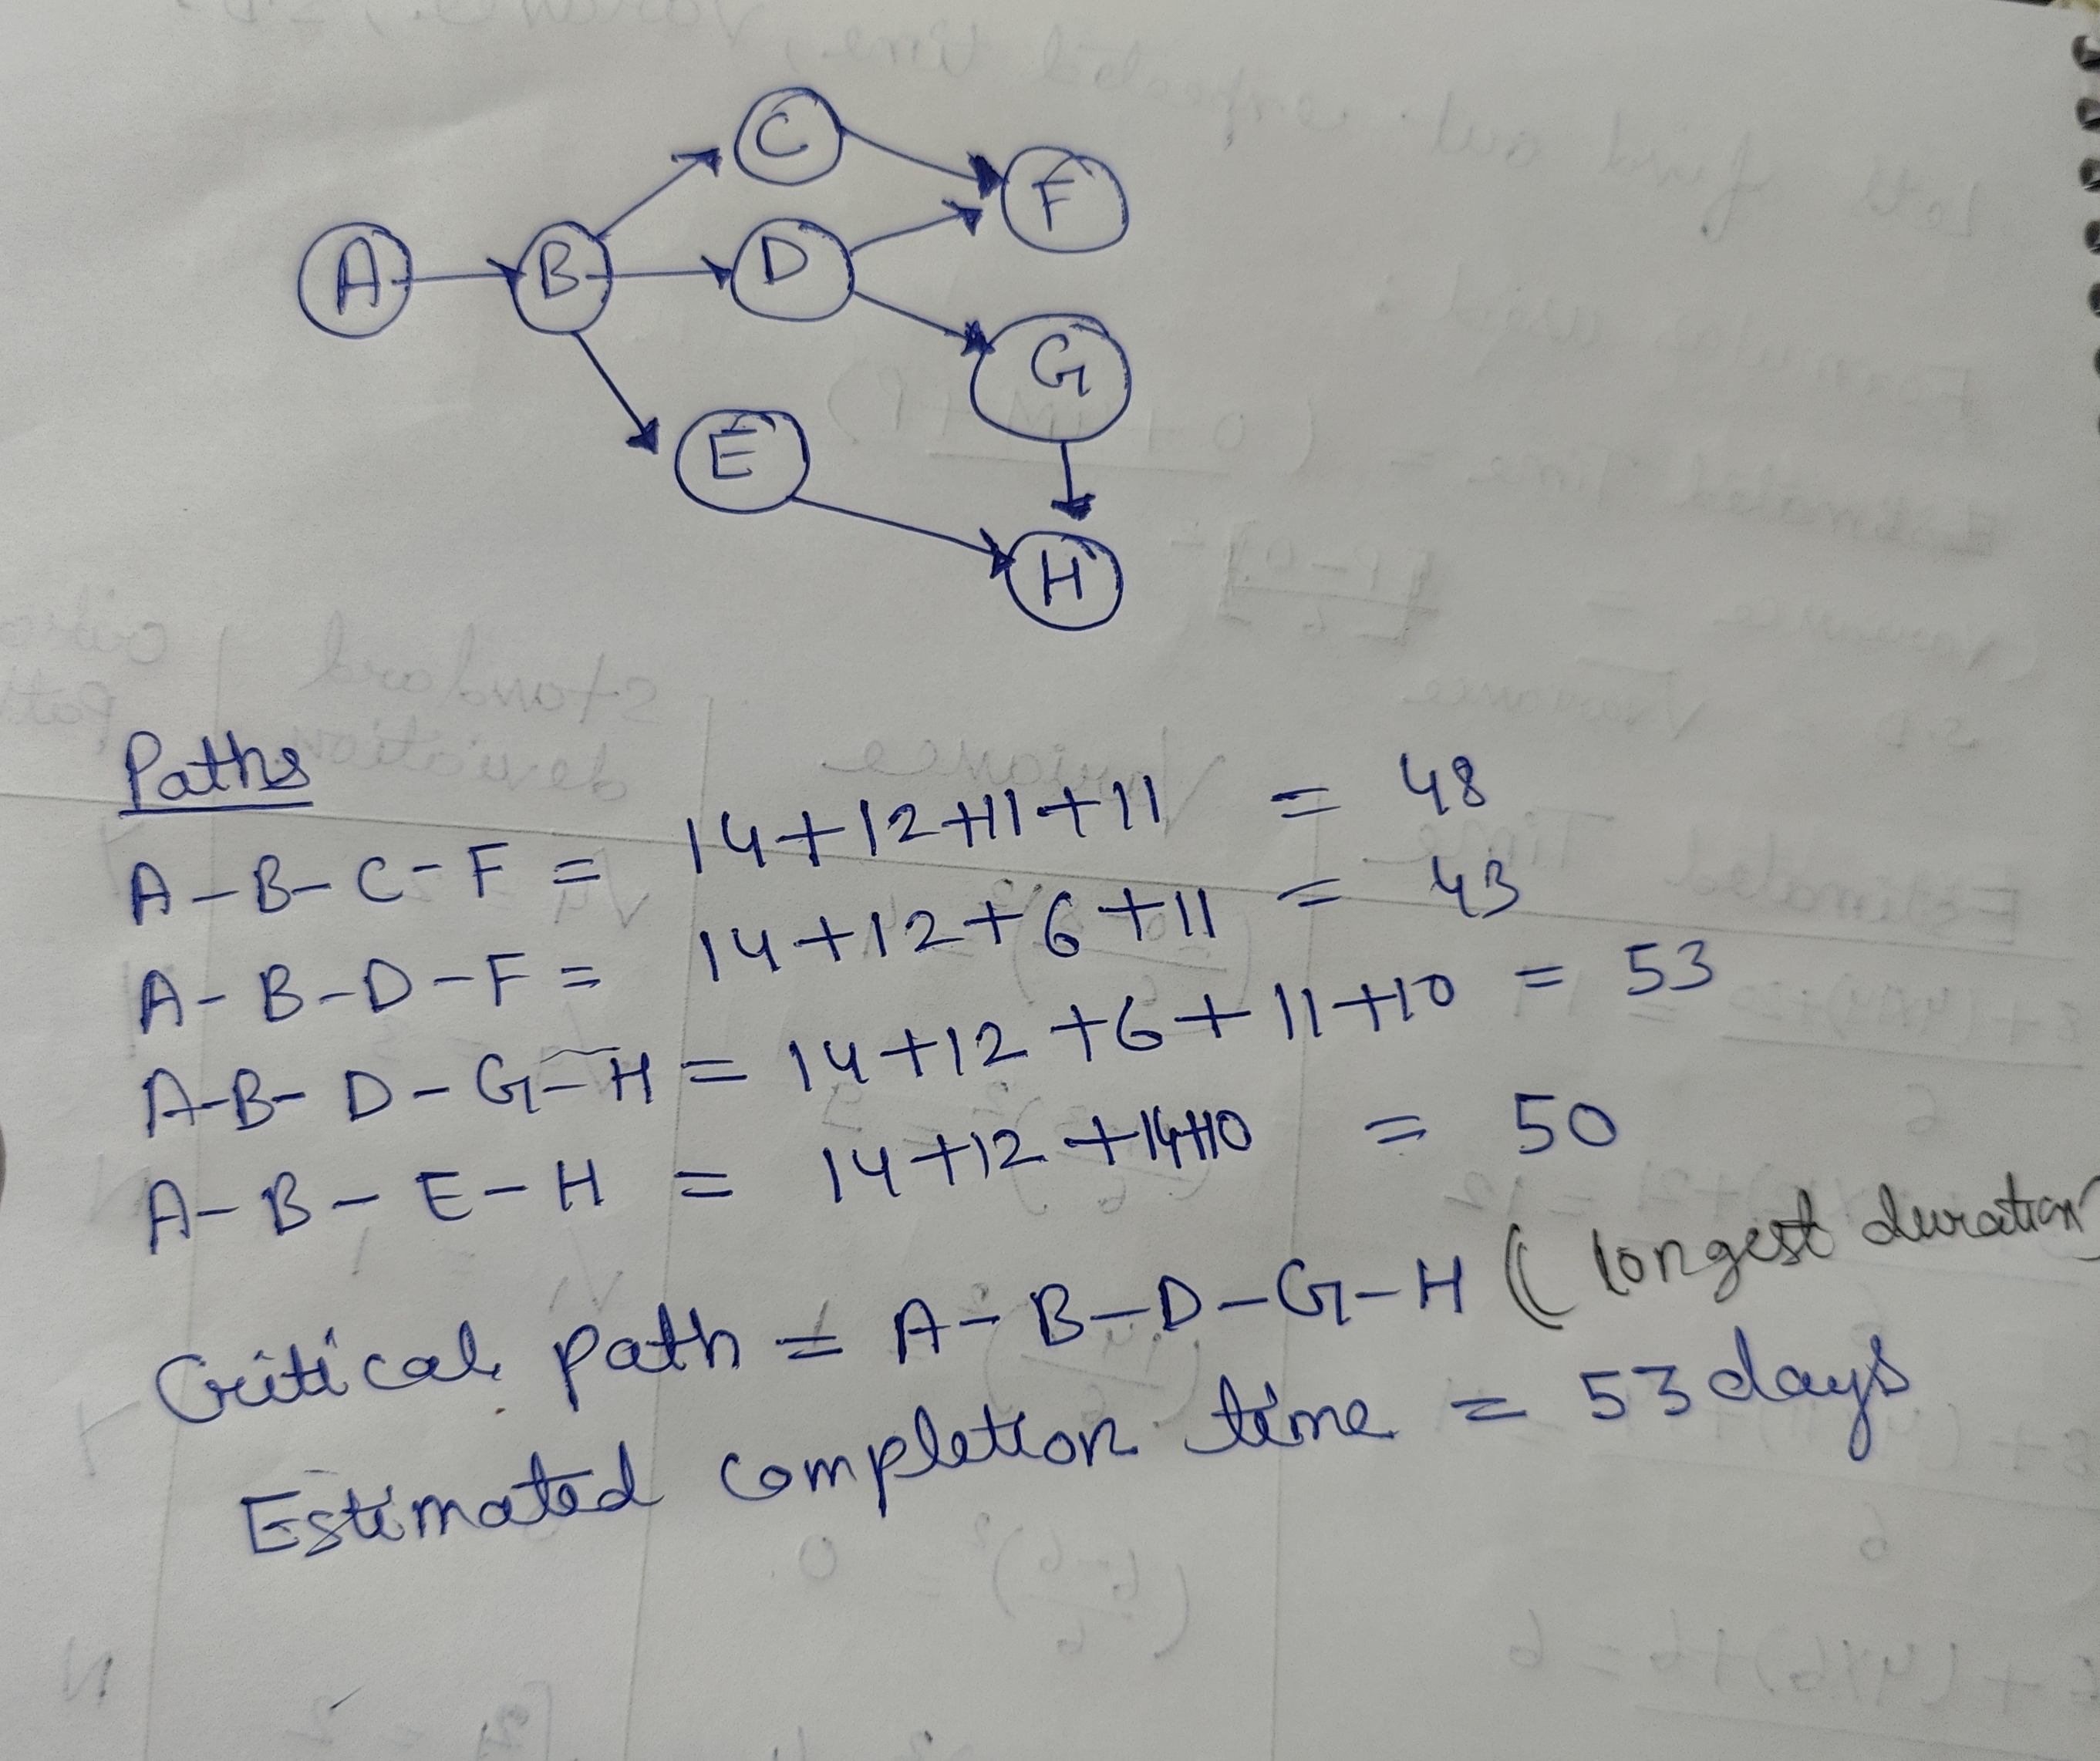 C
F
A
B
D
G
E
H
Paths
A-B-C-F = 14+12+11+11 = 48
A-B-D-F = 14+12+6+11 = 43
A-B-D-G-H = 14+12+6+11+10 = 53
A-B-E-H = 14+12+14+10 = 50
Critical path = A-B-D-G-H (longest duration)
Estimated completion time = 53 days